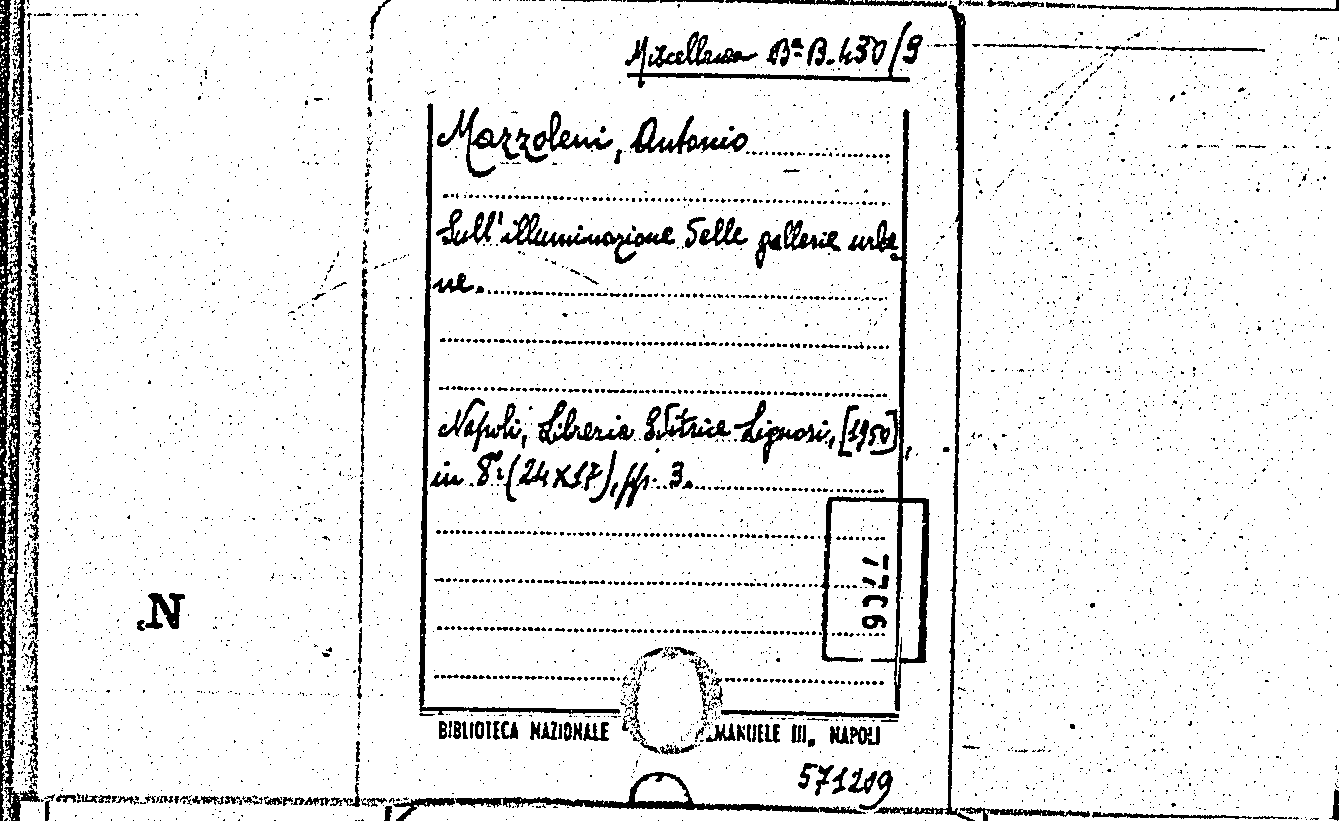 Miscellanea Bª B.430/9
Mazzoleni, Antonio
Sull'illuminazione delle gallerie urba
ne.
Napoli, Libreria Editrice Liguori, [1950],
in 8º (24x17), pp. 3.
7706
N
BIBLIOTECA NAZIONALE MANUELE III„ NAPOLI
571209